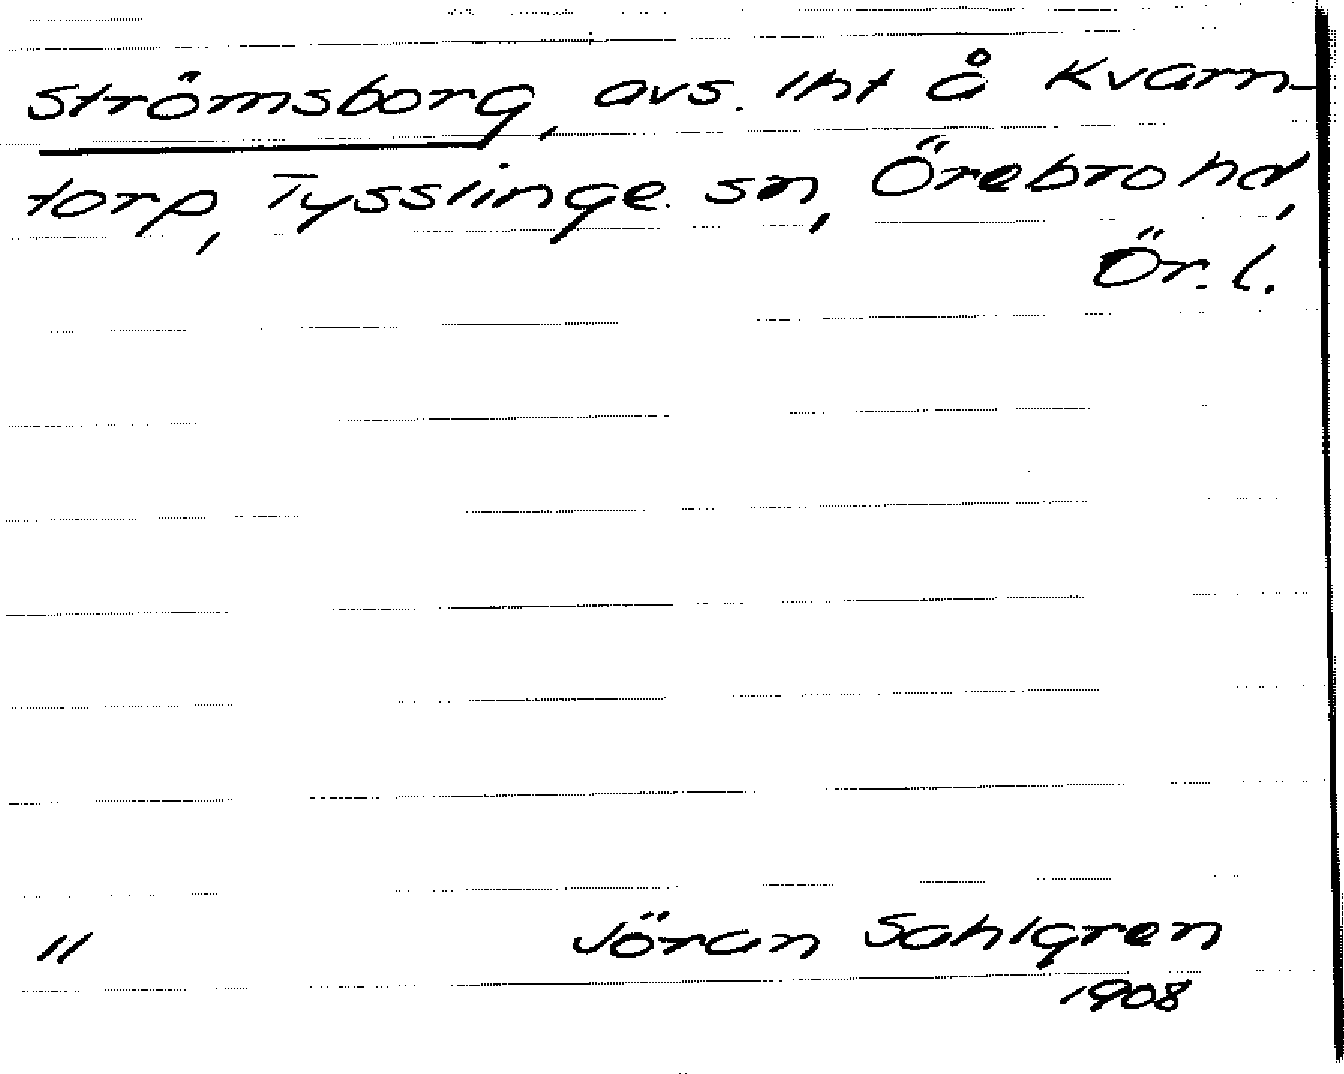 Strömsborg, avs. lht å Kvarn-
torp, Tysslinge sn, Örebro hd,
Ör. l.
11 Jöran Sahlgren
1908